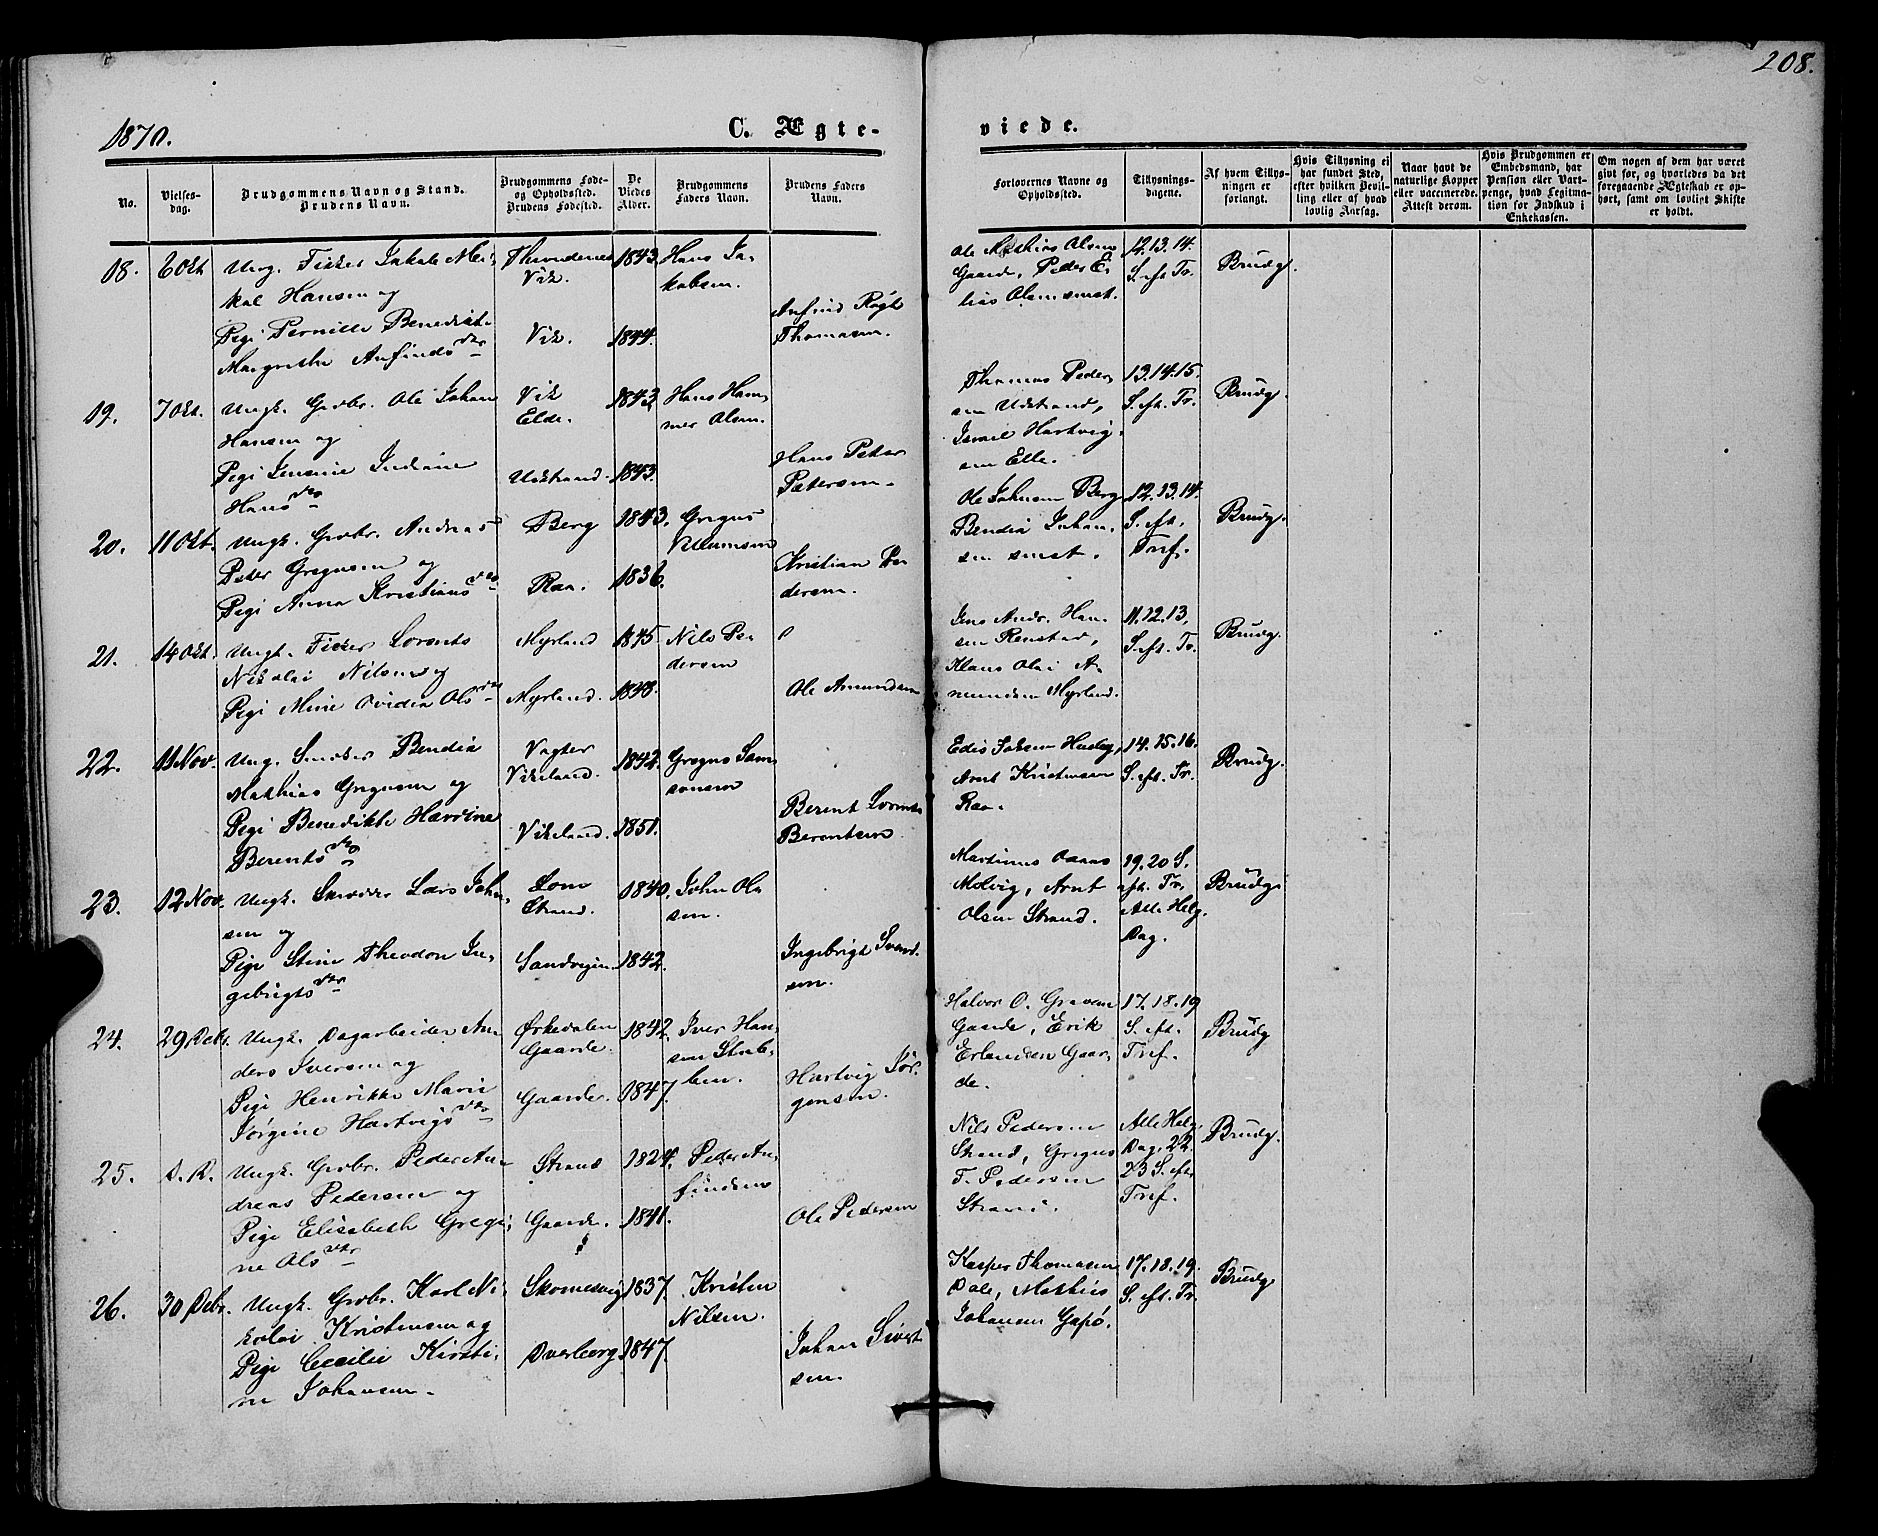 208.
1870.
C. Ægte-
viede.
No.
Vielses-
dag.
Brudgommens Navn og Stand.
Brudens Navn.
Brudgommens Føde-
og Opholdssted.
Brudens Fødested.
De
Viedes
Alder.
Brudgommens
Faders Navn.
Brudens Faders
Navn.
Forlovernes Navne og
Opholdssted.
Tillysnings-
dagene.
Af hvem Tillys-
ningen er
forlangt.
Hvis Tillysning ei
har fundet Sted,
efter hvilken Bevil-
ling eller af hvad
lovlig Aarsag.
Naar havt de
naturlige Kopper
eller vaccinerede.
Attest derom.
Hvis Brudgommen er
Embedsmand, har
Pension eller Vart-
penge, hvad Legitima-
tion for Indskud i
Enkekassen.
Om nogen af dem har været
givt før, og hvorledes da det
foregaaende Ægteskab er op-
hørt, samt om lovligt Skifte
er holdt.
18. 6 Okt
Ung. Fisker Jakob Mei-
kal Hansen og
Pige Pernille Benedikt-
Margrethe Anfindsdtr
Throndenes
Vik.
Vik.
1843.
1844.
Hans Ja-
kobsen.
Anfind Røgh
Thomasen.
Ole Mathias Olsen
Gaard, Peder E-
lias Olsen smst.
12.13.14.
S. eft. Tr.
Brudg.
19. 7 Okt.
Ungk. Grdbr. Ole Johan
Hansen og
Pige Jensine Indiane
Hansdtr
Vik
Elde.
Udstrand.
1843
1843.
Hans Ham-
mer Olsen.
Hans Peter
Petersen.
Thomas Peder-
sen Udstrand,
Ismael Hartvig-
sen Elle.
13.14.15.
S. eft. Tr.
Brudg.
20. 11 Okt.
Ungk. Grdbr. Andreas
Peder Gregusen og
Pige Anna Kristiansdtr
Berg
Raa.
1843.
1836.
Gregus
Villumsen
Kristian Pe-
dersen.
Ole Johnsen Berg
Bendix Johan-
sen smst.
12.13.14.
S. eft.
Tref.
Brudg.
21. 14 Okt.
Ungk. Fisker Lorents
Nikolai Nilsen og
Pige Mine Ovidea Olsdtr
Myrland
Myrland.
1845
1848.
Nils Pe-
dersen
Ole Amundsen
Jens Andr. Han-
sen Renstad,
Klaus Olai A-
mundsen Myrland.
11.12.13.
S. eft. Tr.
Brudg.
22. 11 Nov.
Ung. Snedker Bendix
Mathias Gregusen og
Pige Benedikte Havrine
Berentsdtr
Vagter
Vikeland.
Vikeland.
1842.
1851.
Gregus Sam-
sonsen
Berent Lorents
Berentsen
Edis Johsen Husby,
Arnt Kristensen
Raa.
14.15.16.
S. eft. Tr.
Brudg.
23. 12 Nov.
Ungk. Snedker Lars John-
sen og
Pige Stine Theodora In-
gebrigtsdtr
Lom
Strand.
Sandvigen
1840.
1842.
John Ol-
sen.
Ingebrigt Svend-
sen.
Martinus Aanes
Molvig, Arnt
Olsen Strand.
19.20 S.
eft. Tr.
Alle Helg.
Dag.
Brudg.
24. 29 Debr.
Ungk. Dagarbeider An-
ders Iversen og
Pige Henrikke Marie
Jørgine Hartvigsdtr
Ørkedalen
Gaarde.
Gaarde.
1842.
1847.
Iver Han-
sen Steb-
ben.
Hartvig Jør-
gensen.
Halvor O. Graven
Gaarde, Erik
Erlandsen Gaar-
de.
17.18.19
S. eft.
Tref.
Brudg
25. S. D.
Ungk. Grdbr. Peder An-
dreas Pedersen og
Pige Elisabeth Gregi-
ne Olsdtr
Strand
Gaarde.
1824.
1841.
Peder An-
findsen
Ole Pedersen
Nils Pedersen
Strand, Gregus
T. Pedersen
Strand.
Alle Helg.
Dag, 22
23 S. eft.
Tref.
Brudg.
26. 30 Debr.
Ungk. Grdbr. Karl Ni-
kolai Kristensen og
Pige Cecilie Kirsti-
ne Johansen.
Skomesvig
Dverberg
1837.
1847.
Kristen
Nilsen.
Johan Sivert
sen.
Kasper Thomasen
Dale, Mathias
Johansen Gapø.
17.18.19.
S. eft. Tr.
Brudg